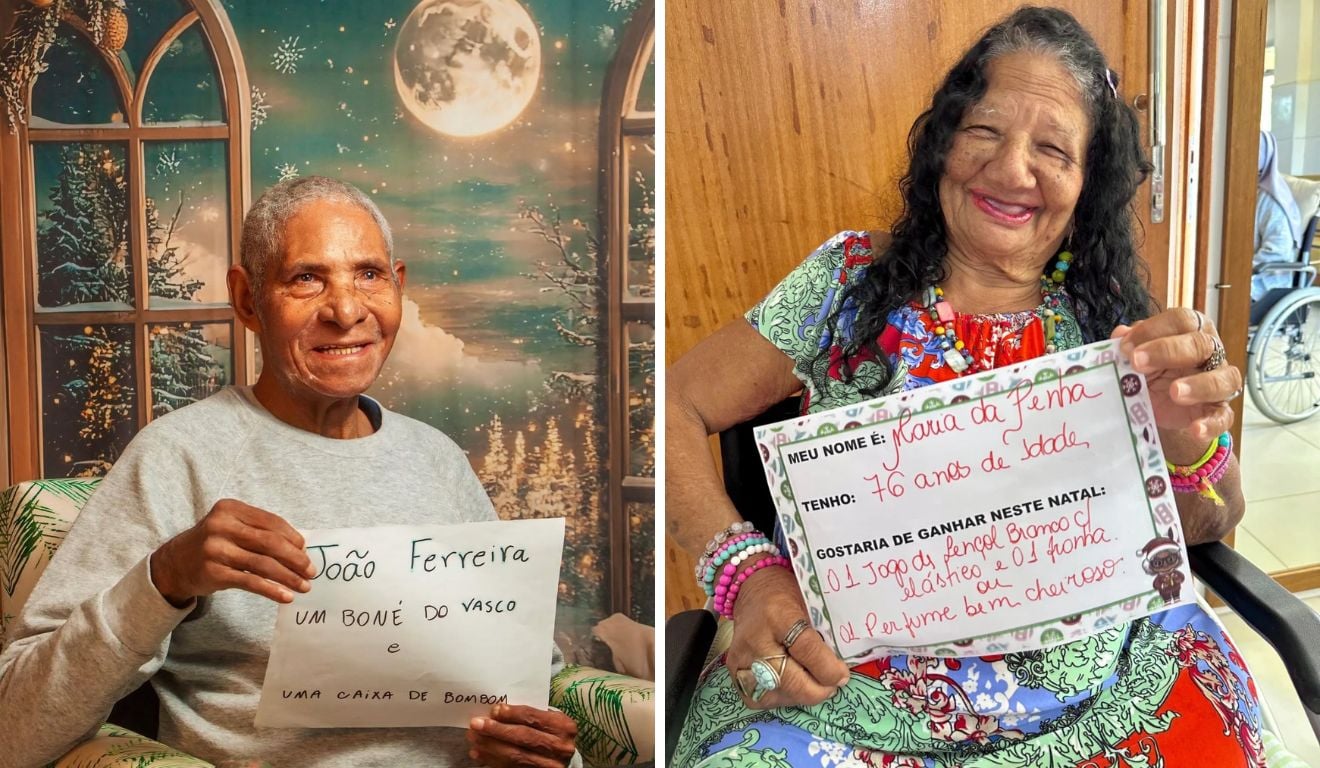 João Ferreira
UM BONÉ DO VASCO
e
UMA CAIXA DE BOMBOM
MEU NOME É: Maria da Penha
TENHO: 76 anos de Idade,
GOSTARIA DE GANHAR NESTE NATAL:
01 Jogo de Lençol Branco c/
elástico e 01 fronha.
ou
01 Perfume bem cheiroso.